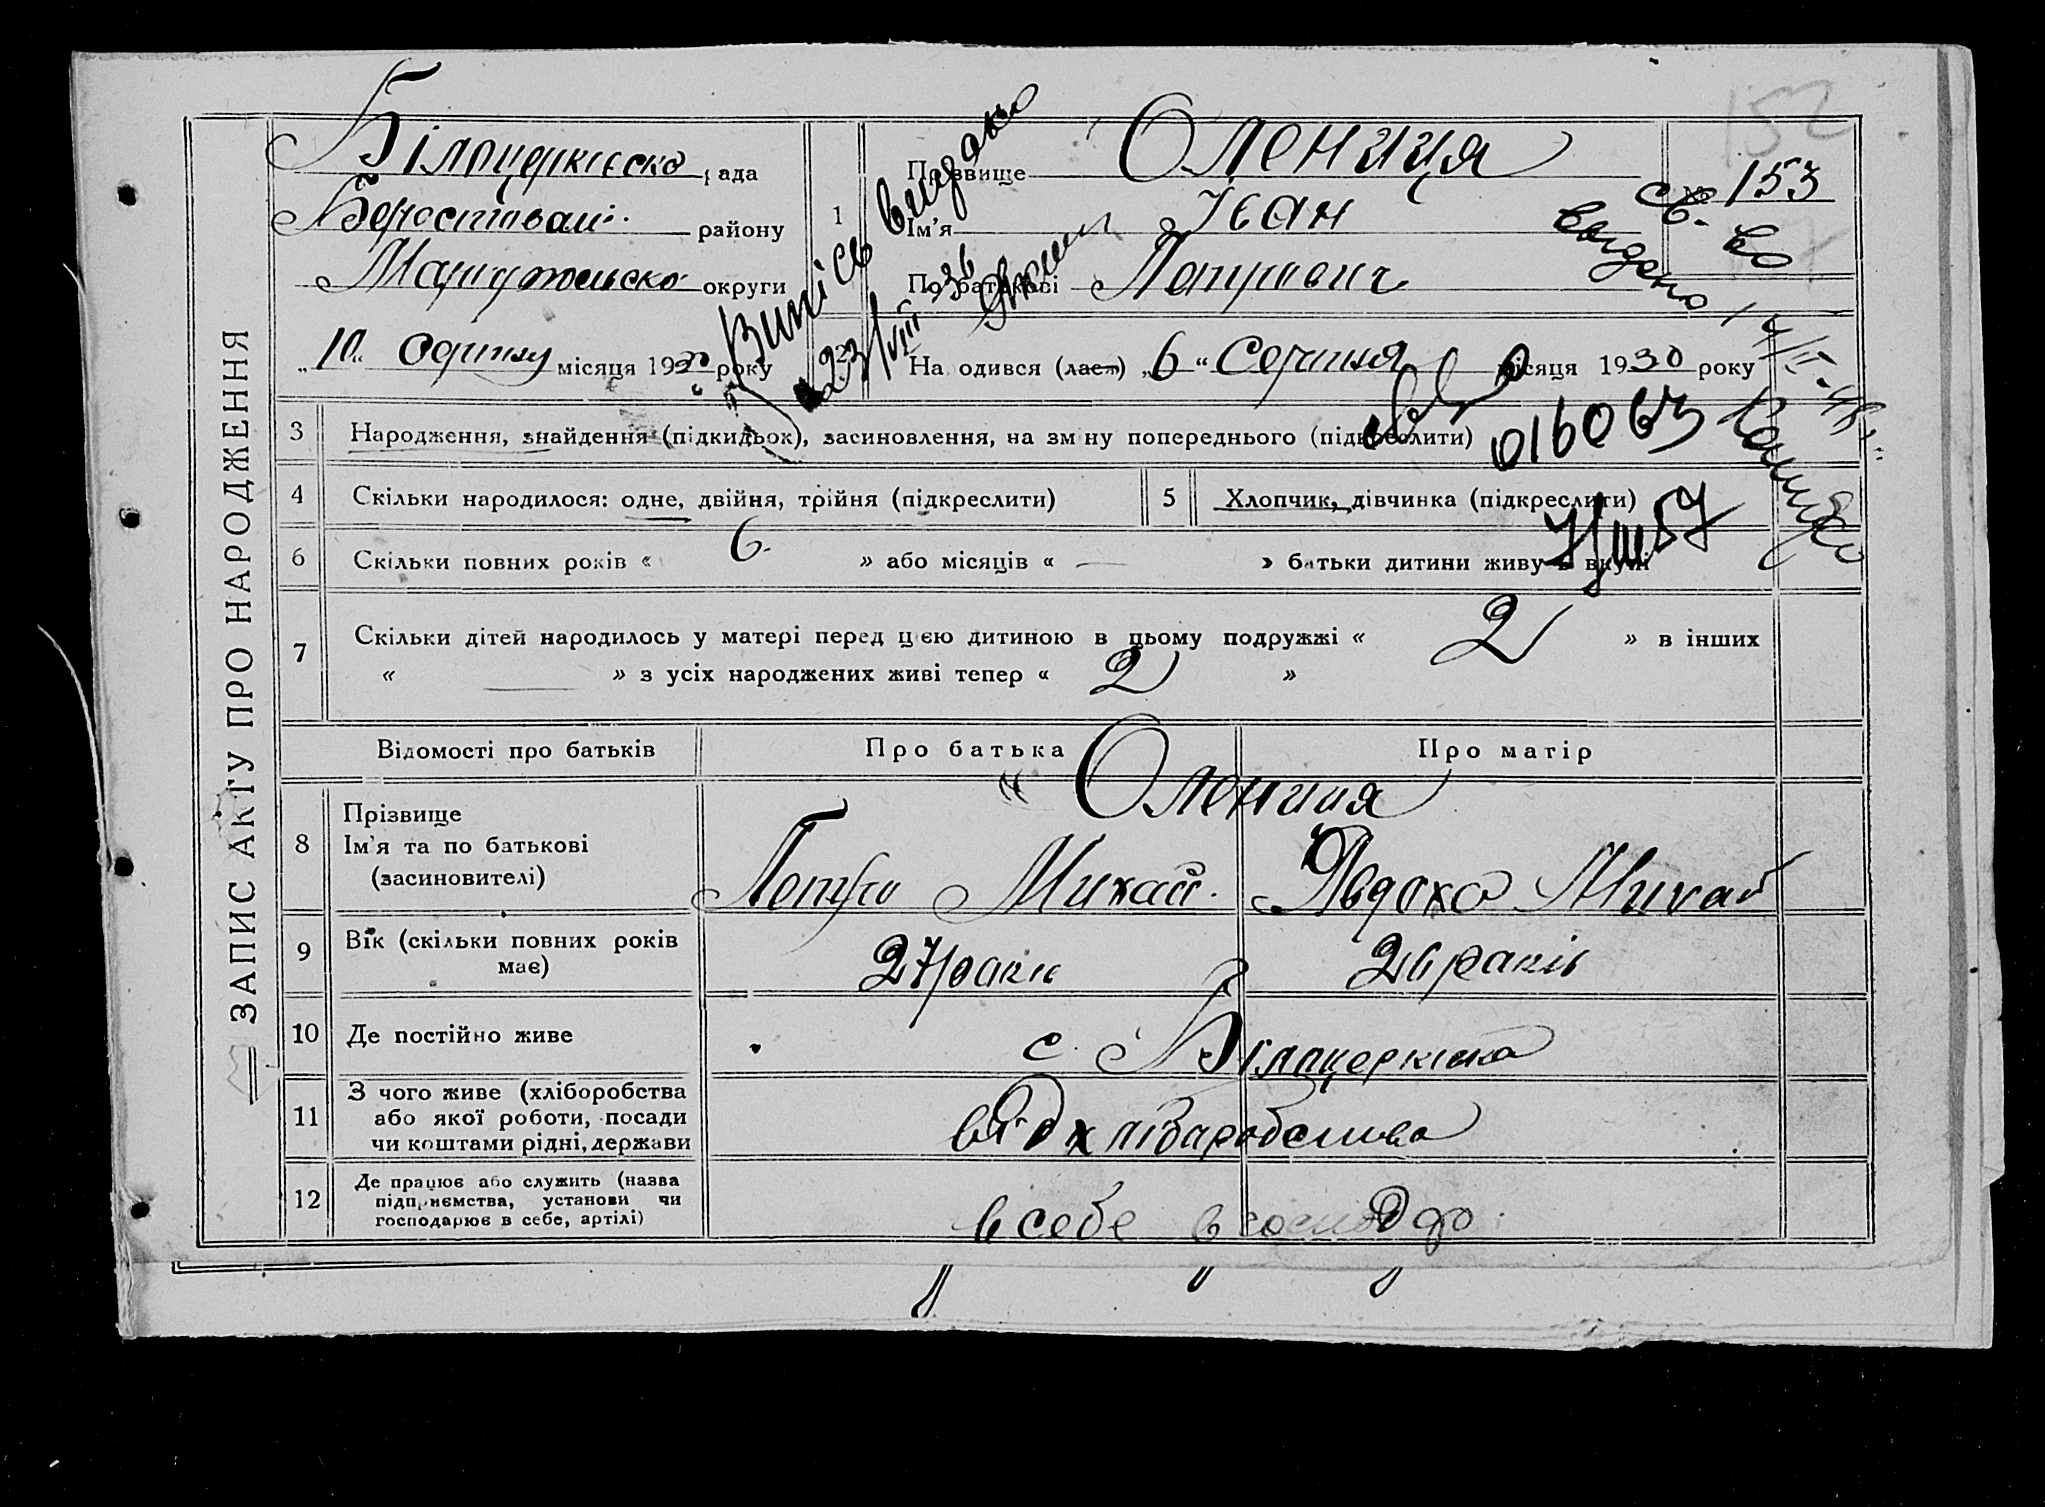 ЗАПИС АКТУ ПРО НАРОДЖЕННЯ
152
Білоцерківско рада
району
округи
„10“ серпня місяця 1930 року
1
Прізвище Олениця
Ім'я Іван
По батькові Петрович
№ 153
св-во
видано
Випись видано
23/VIII 36
2
Народився (лася) „6“ Серпня місяця 1930 року
3 Народження, знайдення (підкидьок), засиновлення, на зміну попереднього (підкреслити)
016063
4 Скільки народилося: одне, двійня, трійня (підкреслити)
5 Хлопчик, дівчинка (підкреслити)
7/III 57
6 Скільки повних років « 6 » або місяців « — » батьки дитини живуть вкупі
7 Скільки дітей народилось у матері перед цією дитиною в цьому подружжі « 2 » в інших
« — » з усіх народжених живі тепер « 2 »
Відомості про батьків Про батька Про матір
8 Прізвище
Ім'я та по батькові
(засиновителі)
Олениця
Петро Михай. Явдоха Михай
9 Вік (скільки повних років
має)
27 років 26 років
10 Де постійно живе
с. Білоцерківка
11 З чого живе (хліборобства
або якої роботи, посади
чи коштами рідні, держави
від хліборобства
12 Де працює або служить (назва
підприємства, установи чи
господарює в себе, артілі)
в себе в